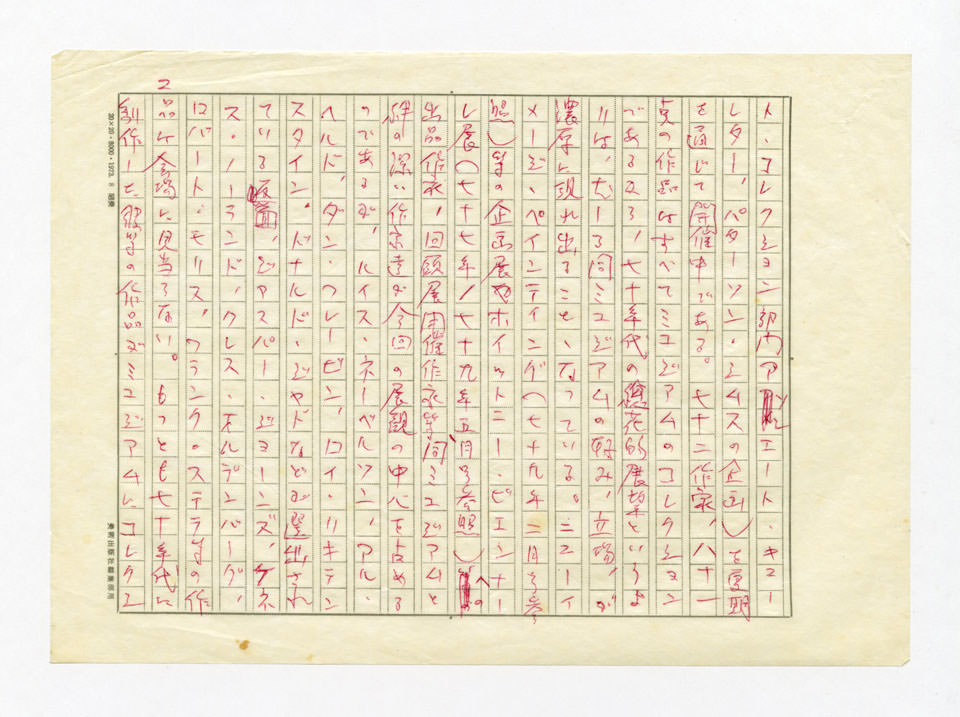 ト・コレクション部内アソシエート・キュー
レター、パターソン・シムスの企画)を夏期
を通じて開催中である。七十二作家、八十一
点の作品はすべてミュジアムのコレクション
であるから、七十年代の総花的展望というよ
りは、むしろ同ミュジアムの好み、立場、が
濃厚に現れ出ることゝなっている。ニューイ
メージ・ペインティング(七十九年二月号参
照)等の企画展やホイットニー・ビエンナー
レ展(七十七年、七十九年五月号参照)への
出品作家、回顧展開催作家等、同ミュジアムと
絆の深い作家達が今回の展観の中心を占める
のであるが、ルイス・ネーベルソン、アル・
ヘルド、ダン・フレービン、ロイ・リキテン
スタイン。ドナルド・ジャドなどが選出され
ている反面、ジャスパー・ジョーンズ、ケネ
ス・ノーランド、クレス・オルデンバーグ、
ロバート・モリス、フランク・ステラ等の作
品は会場に見当らない。もっとも七十年代に
制作した彼等の作品がミュジアムにコレクシ
2
20×20・8000・1973. 8
美術出版社編集部用